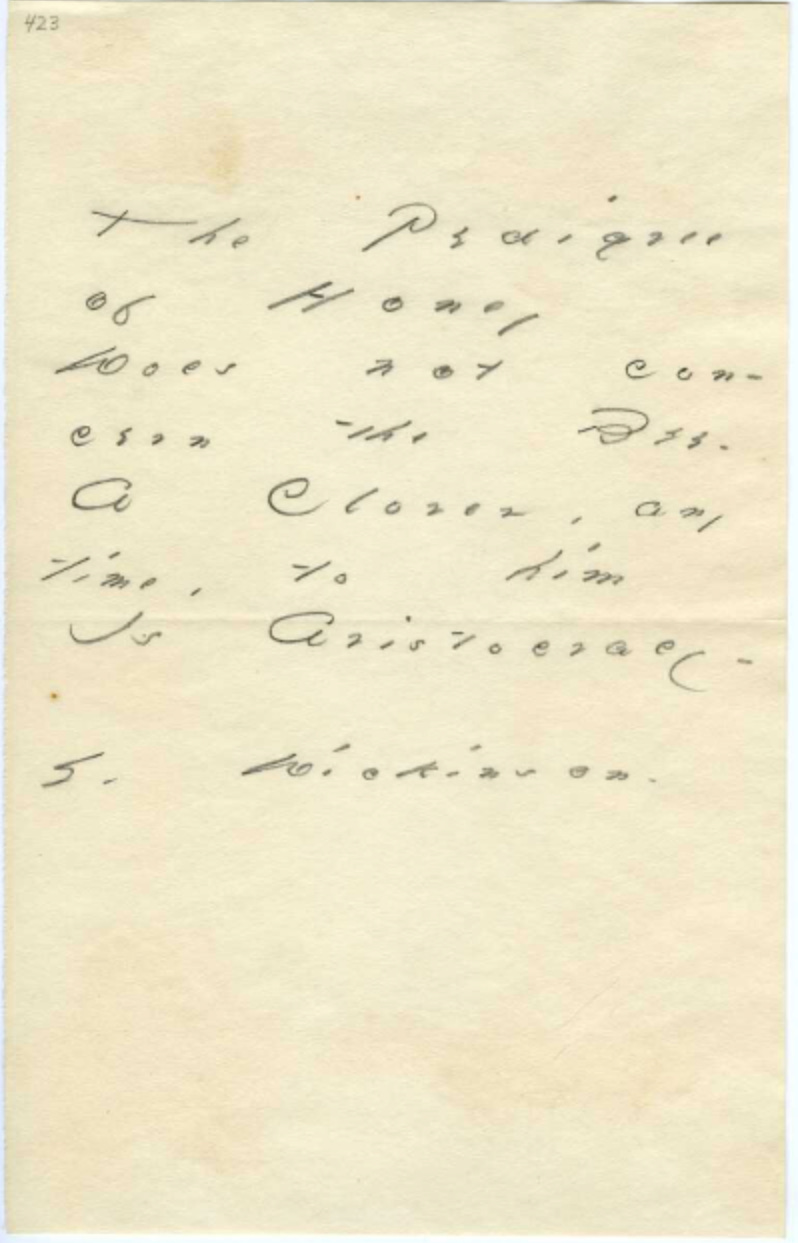 423
The Pedigree
of Honey
Does not con-
cern the Bee.
A Clover, any
time, to him
Is Aristocracy -
E. Dickinson.